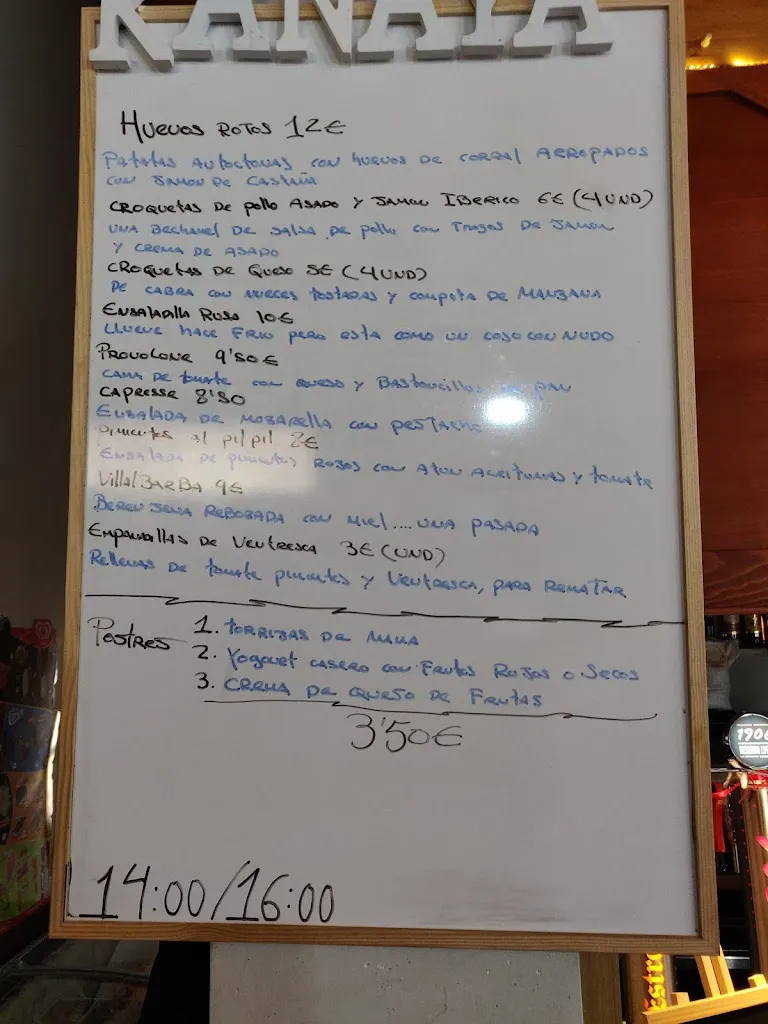 KANAYA
HUEVOS ROTOS 12€
PATATAS AUTOCTONAS CON HUEVOS DE CORRAL ARROPADOS
CON JAMON DE CASTAÑA
CROQUETAS DE POLLO ASADO Y JAMON IBERICO 6€ (4 UND)
UNA BECHAMEL DE SALSA DE POLLO CON TROZOS DE JAMON
Y CREMA DE ASADO
CROQUETAS DE QUESO 5€ (4UND)
DE CABRA CON NUECES TOSTADAS Y COMPOTA DE MANZANA
ENSALADILLA RUSA 10€
LLUEVE HACE FRIO PERO ESTA COMO UN COSO CON NUDO
PROVOLONE 9'50€
CAMA DE TOMATE CON QUESO Y BASTONCILLOS DE PAN
CAPRESSE 8'50
ENSALADA DE MOZARELLA CON PESTACHO
PIMIENTOS AL PIL PIL 8€
ENSALADA DE PIMIENTOS ROJOS CON ATUN ACEITUNAS Y TOMATE
VILLALBARBA 9€
BERENJENA REBOZADA CON MIEL.... UNA PASADA
EMPANADILLAS DE VENTRESCA 3€ (UND)
RELLENAS DE TOMATE PIMIENTOS Y VENTRESCA, PARA REMATAR
POSTRES
1. TORRIJAS DE MAMA
2. YOGOURT CASERO CON FRUTOS ROJOS O SECOS
3. CREMA DE QUESO DE FRUTAS
3'50€
14:00/16:00
1906